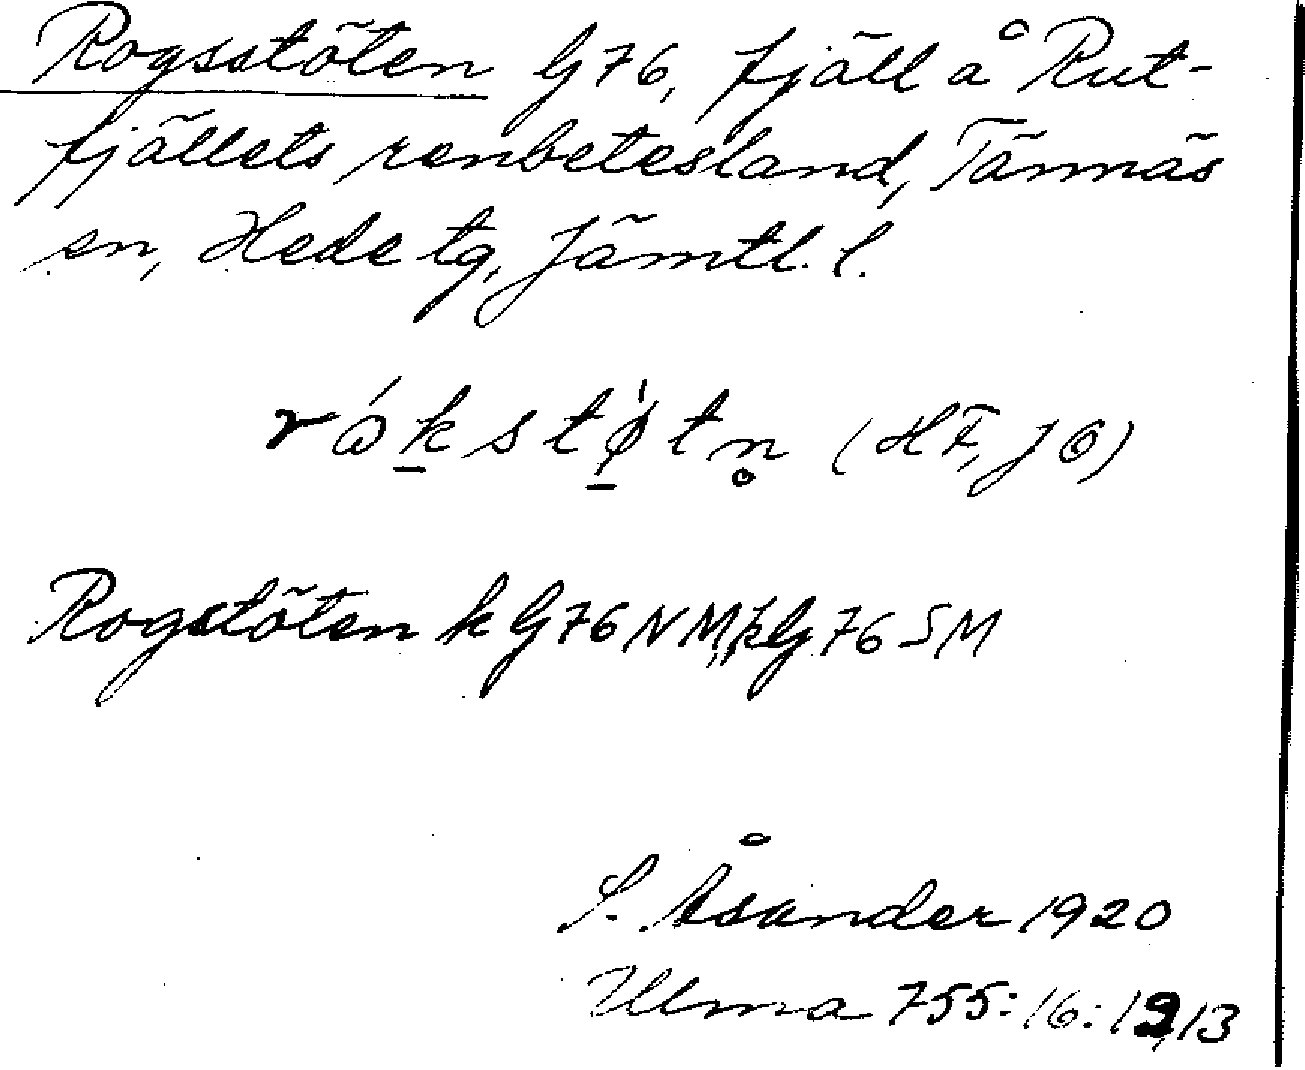 Rogsstöten G76, fjäll å Rut-
fjällets renbetesland, Tännäs
sn, Hede tg, Jämtl. l.
rώk̲stǿ̲tn̥ (HF, JÖ)
Rogstöten k G76NM, k G76SM
S. Åsander 1920
Ulma 755:16:12,13